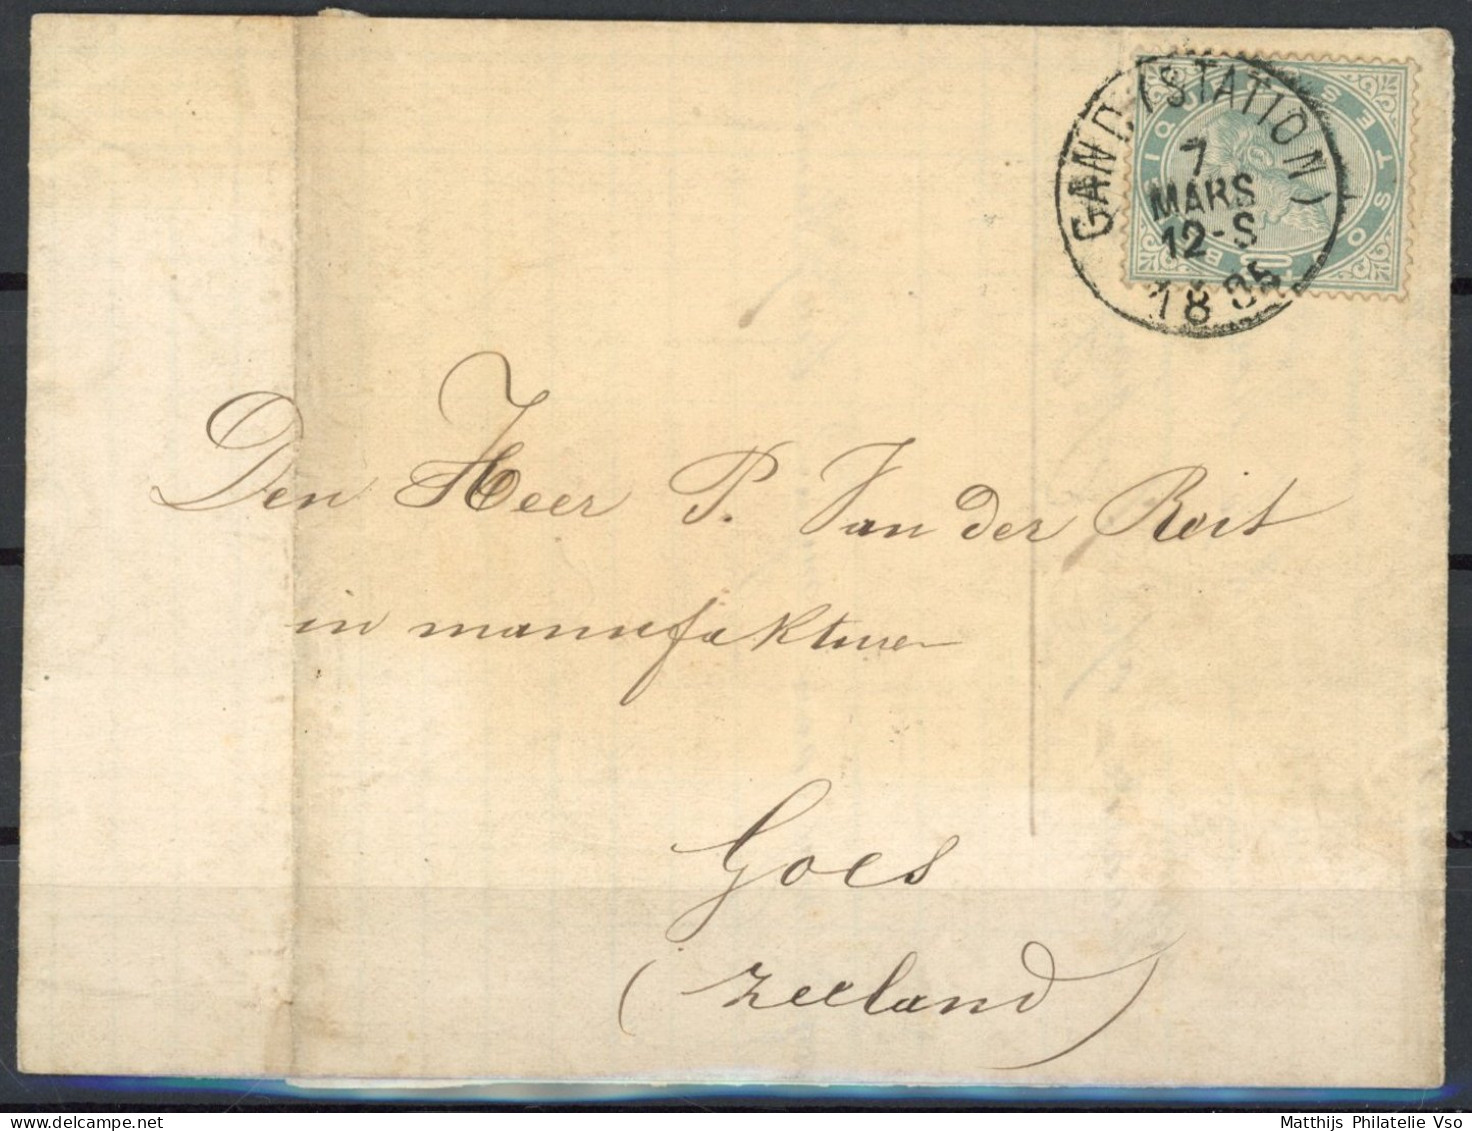 GAND (STATION)
7
MARS
12-S
1885
POSTES
10
Den Heer P. Van der Reit
in manufakturen
Goes
(Zeeland)
Matthijs Philatelie Vso